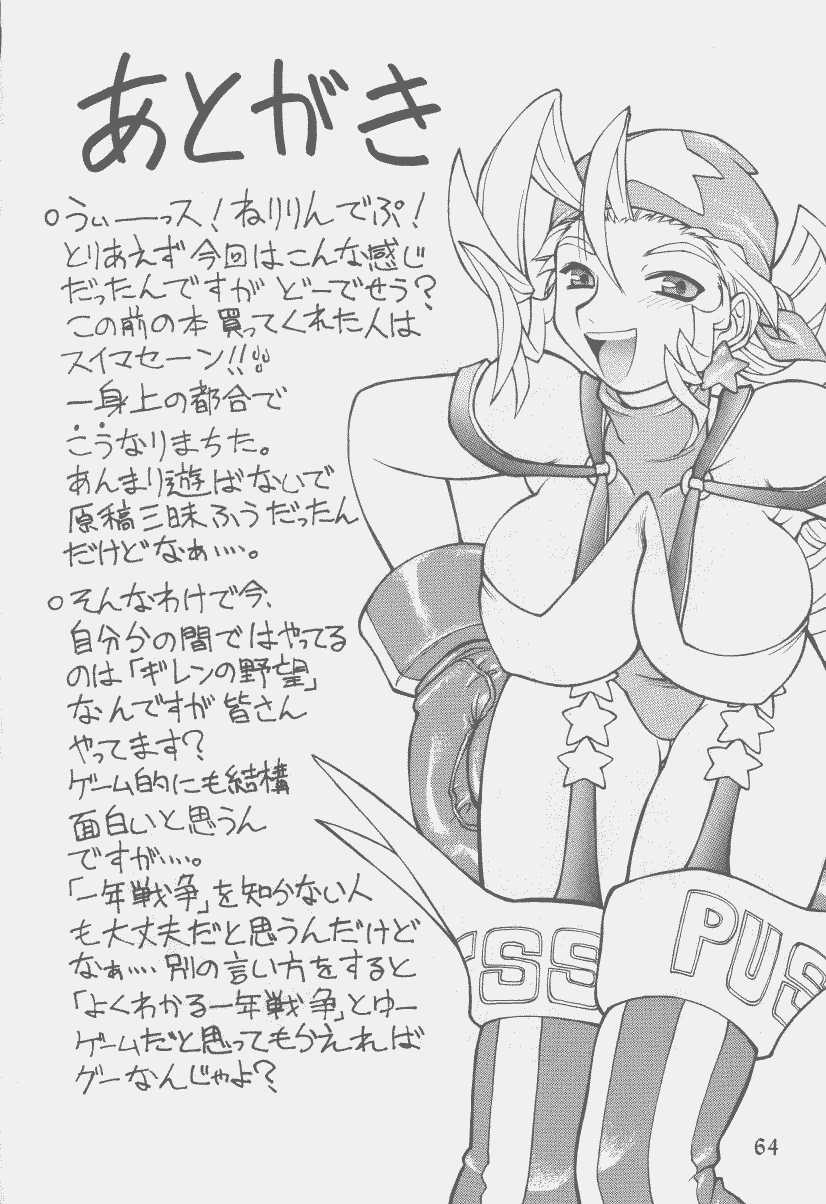 あとがき
○うぃーーっス!ねりりんでぷ!
とりあえず今回はこんな感じ
だったんですが どーでせう?
この前の本買ってくれた人は
スイマセーン!!
一身上の都合で
こうなりまちた。
あんまり遊ばないで
原稿三昧ふうだったん
だけどなぁ・・・・。
○そんなわけで今、
自分分の間ではやってる
のは「ギレンの野望」
なんですが皆さん
やってます?
ゲーム的にも結構
面白いと思うん
ですが・・・・。
「一年戦争」を知かない人
も大丈夫だと思うんだけど
なぁ・・・・別の言い方をすると
「よくわかる一年戦争」とゆー
ゲームだと思ってもかえれば
グーなんじゃよ?
SS
PUS
64